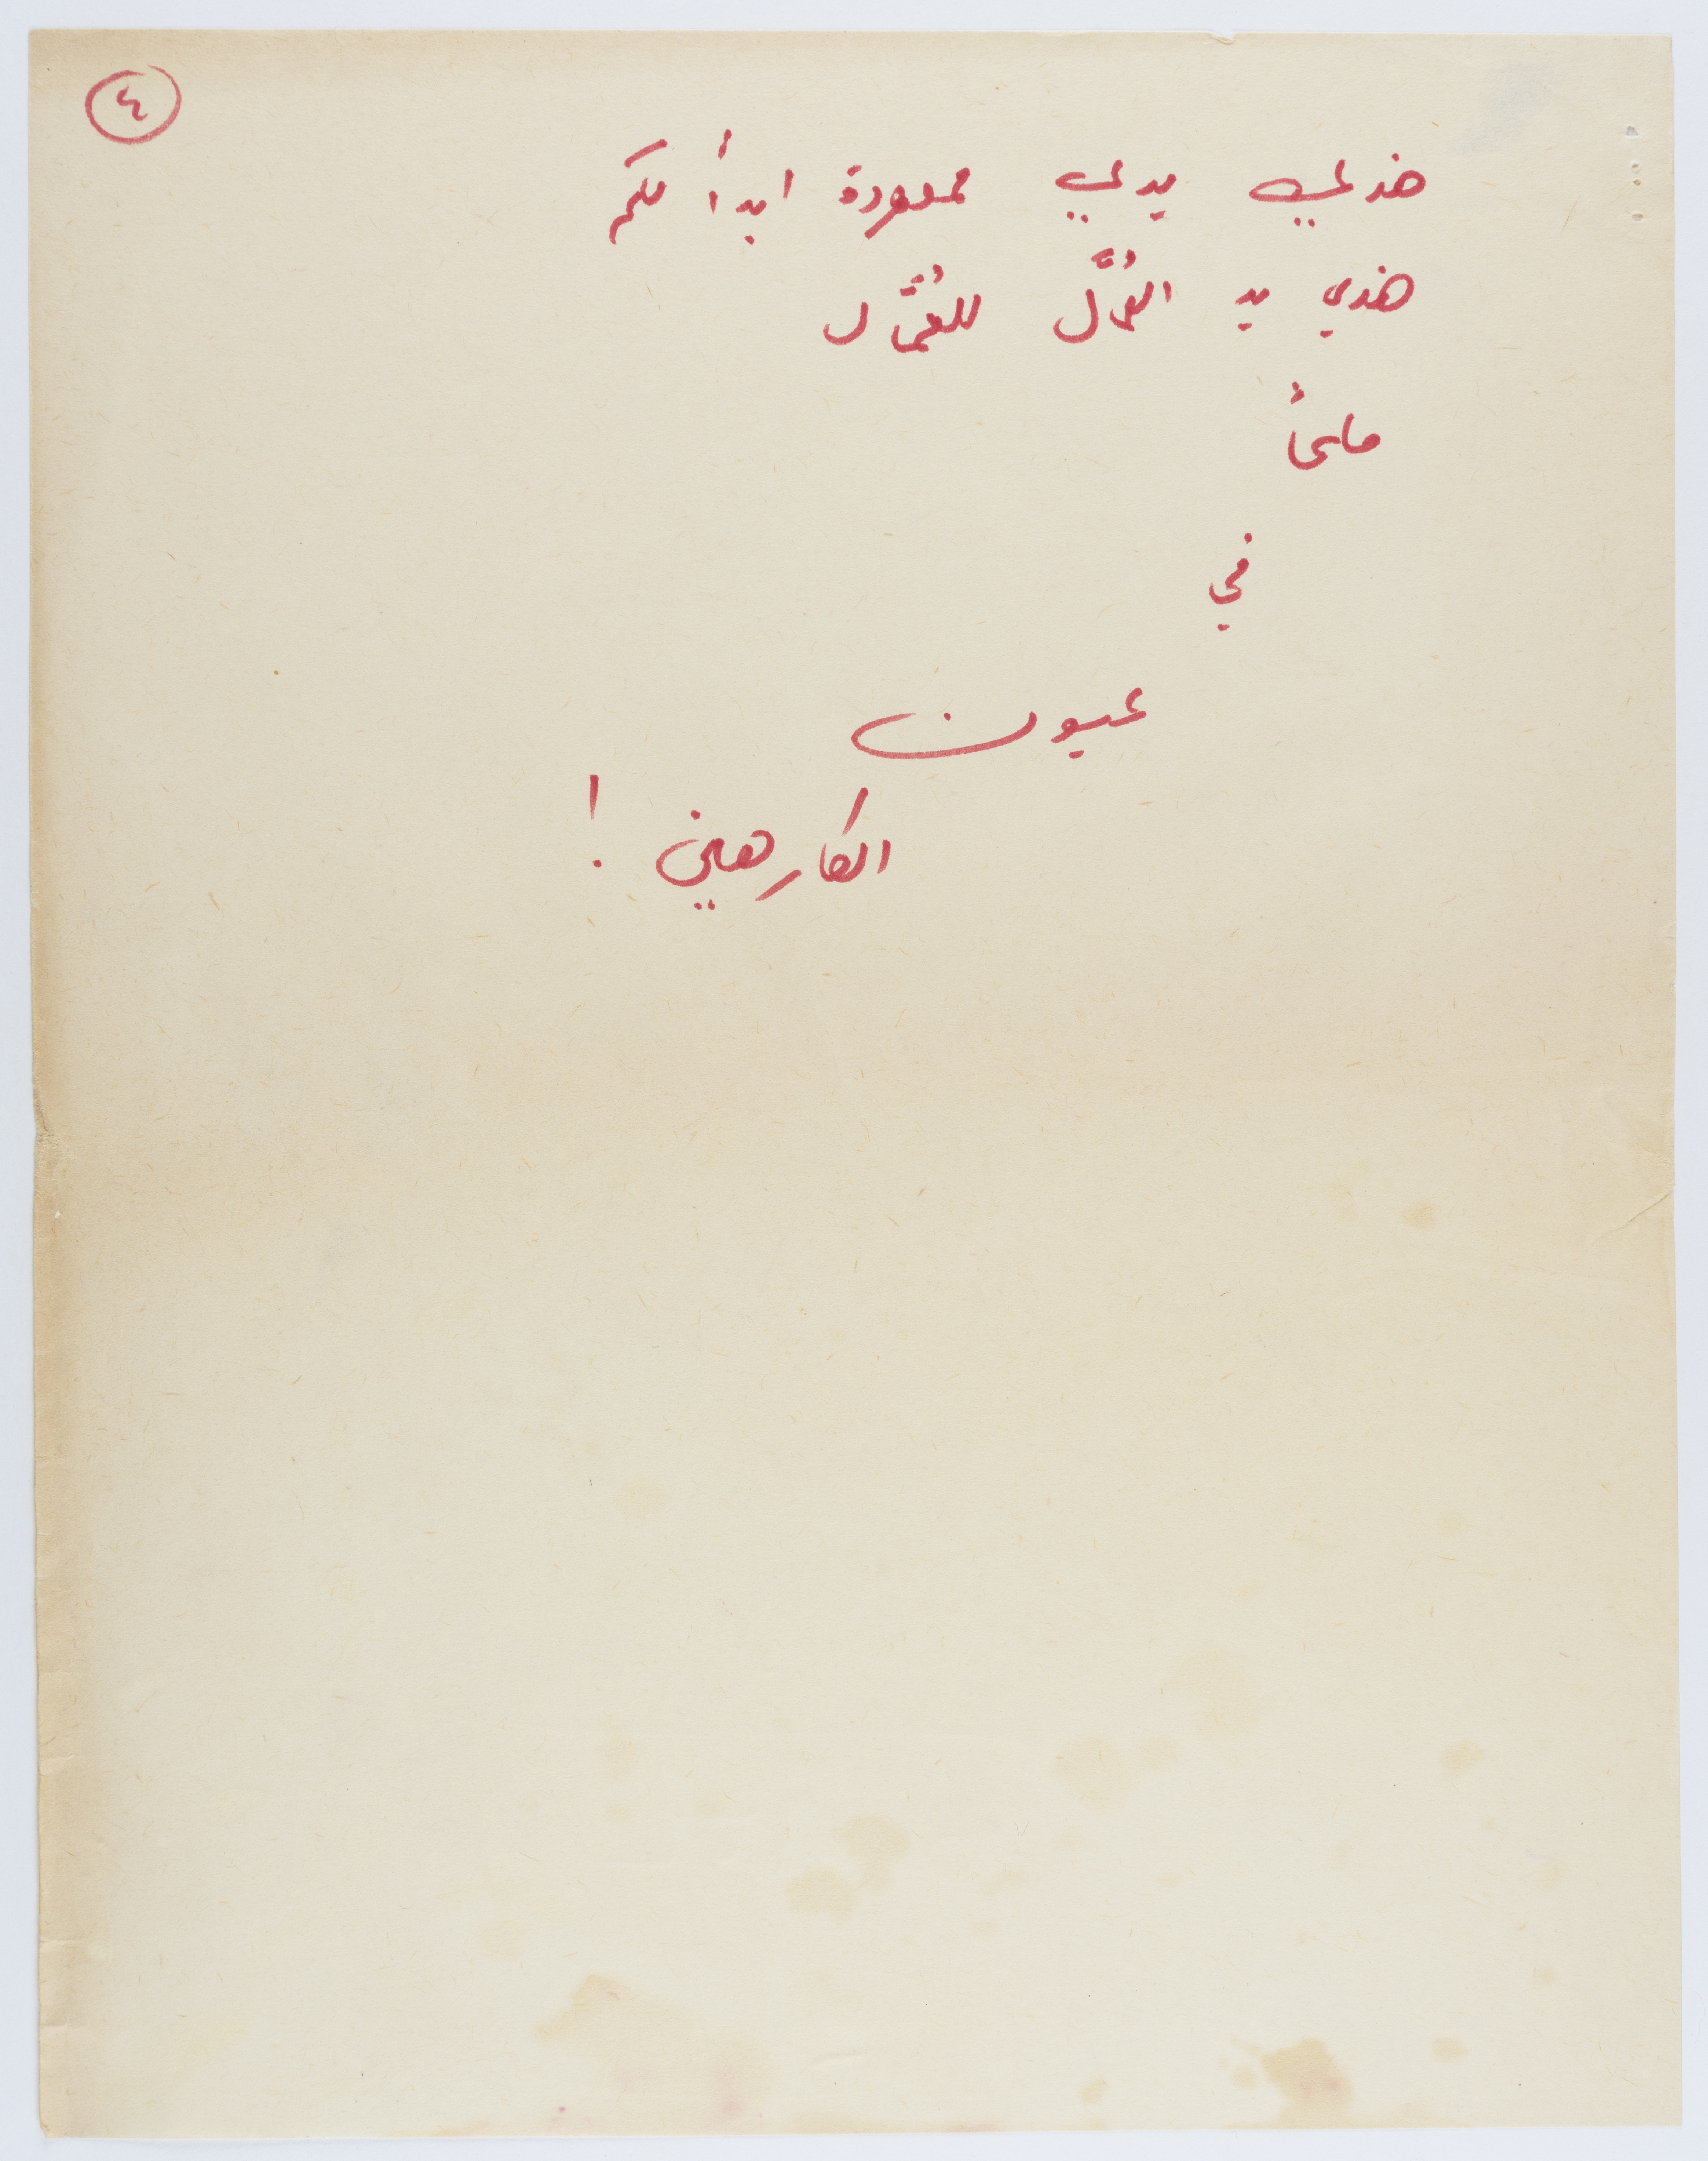 ٤
هذي يدي ممدودة ابدأ لكم
هذي يد العُمَّال للعُمَّال
ملحاً
في
عيون
الكارهين !